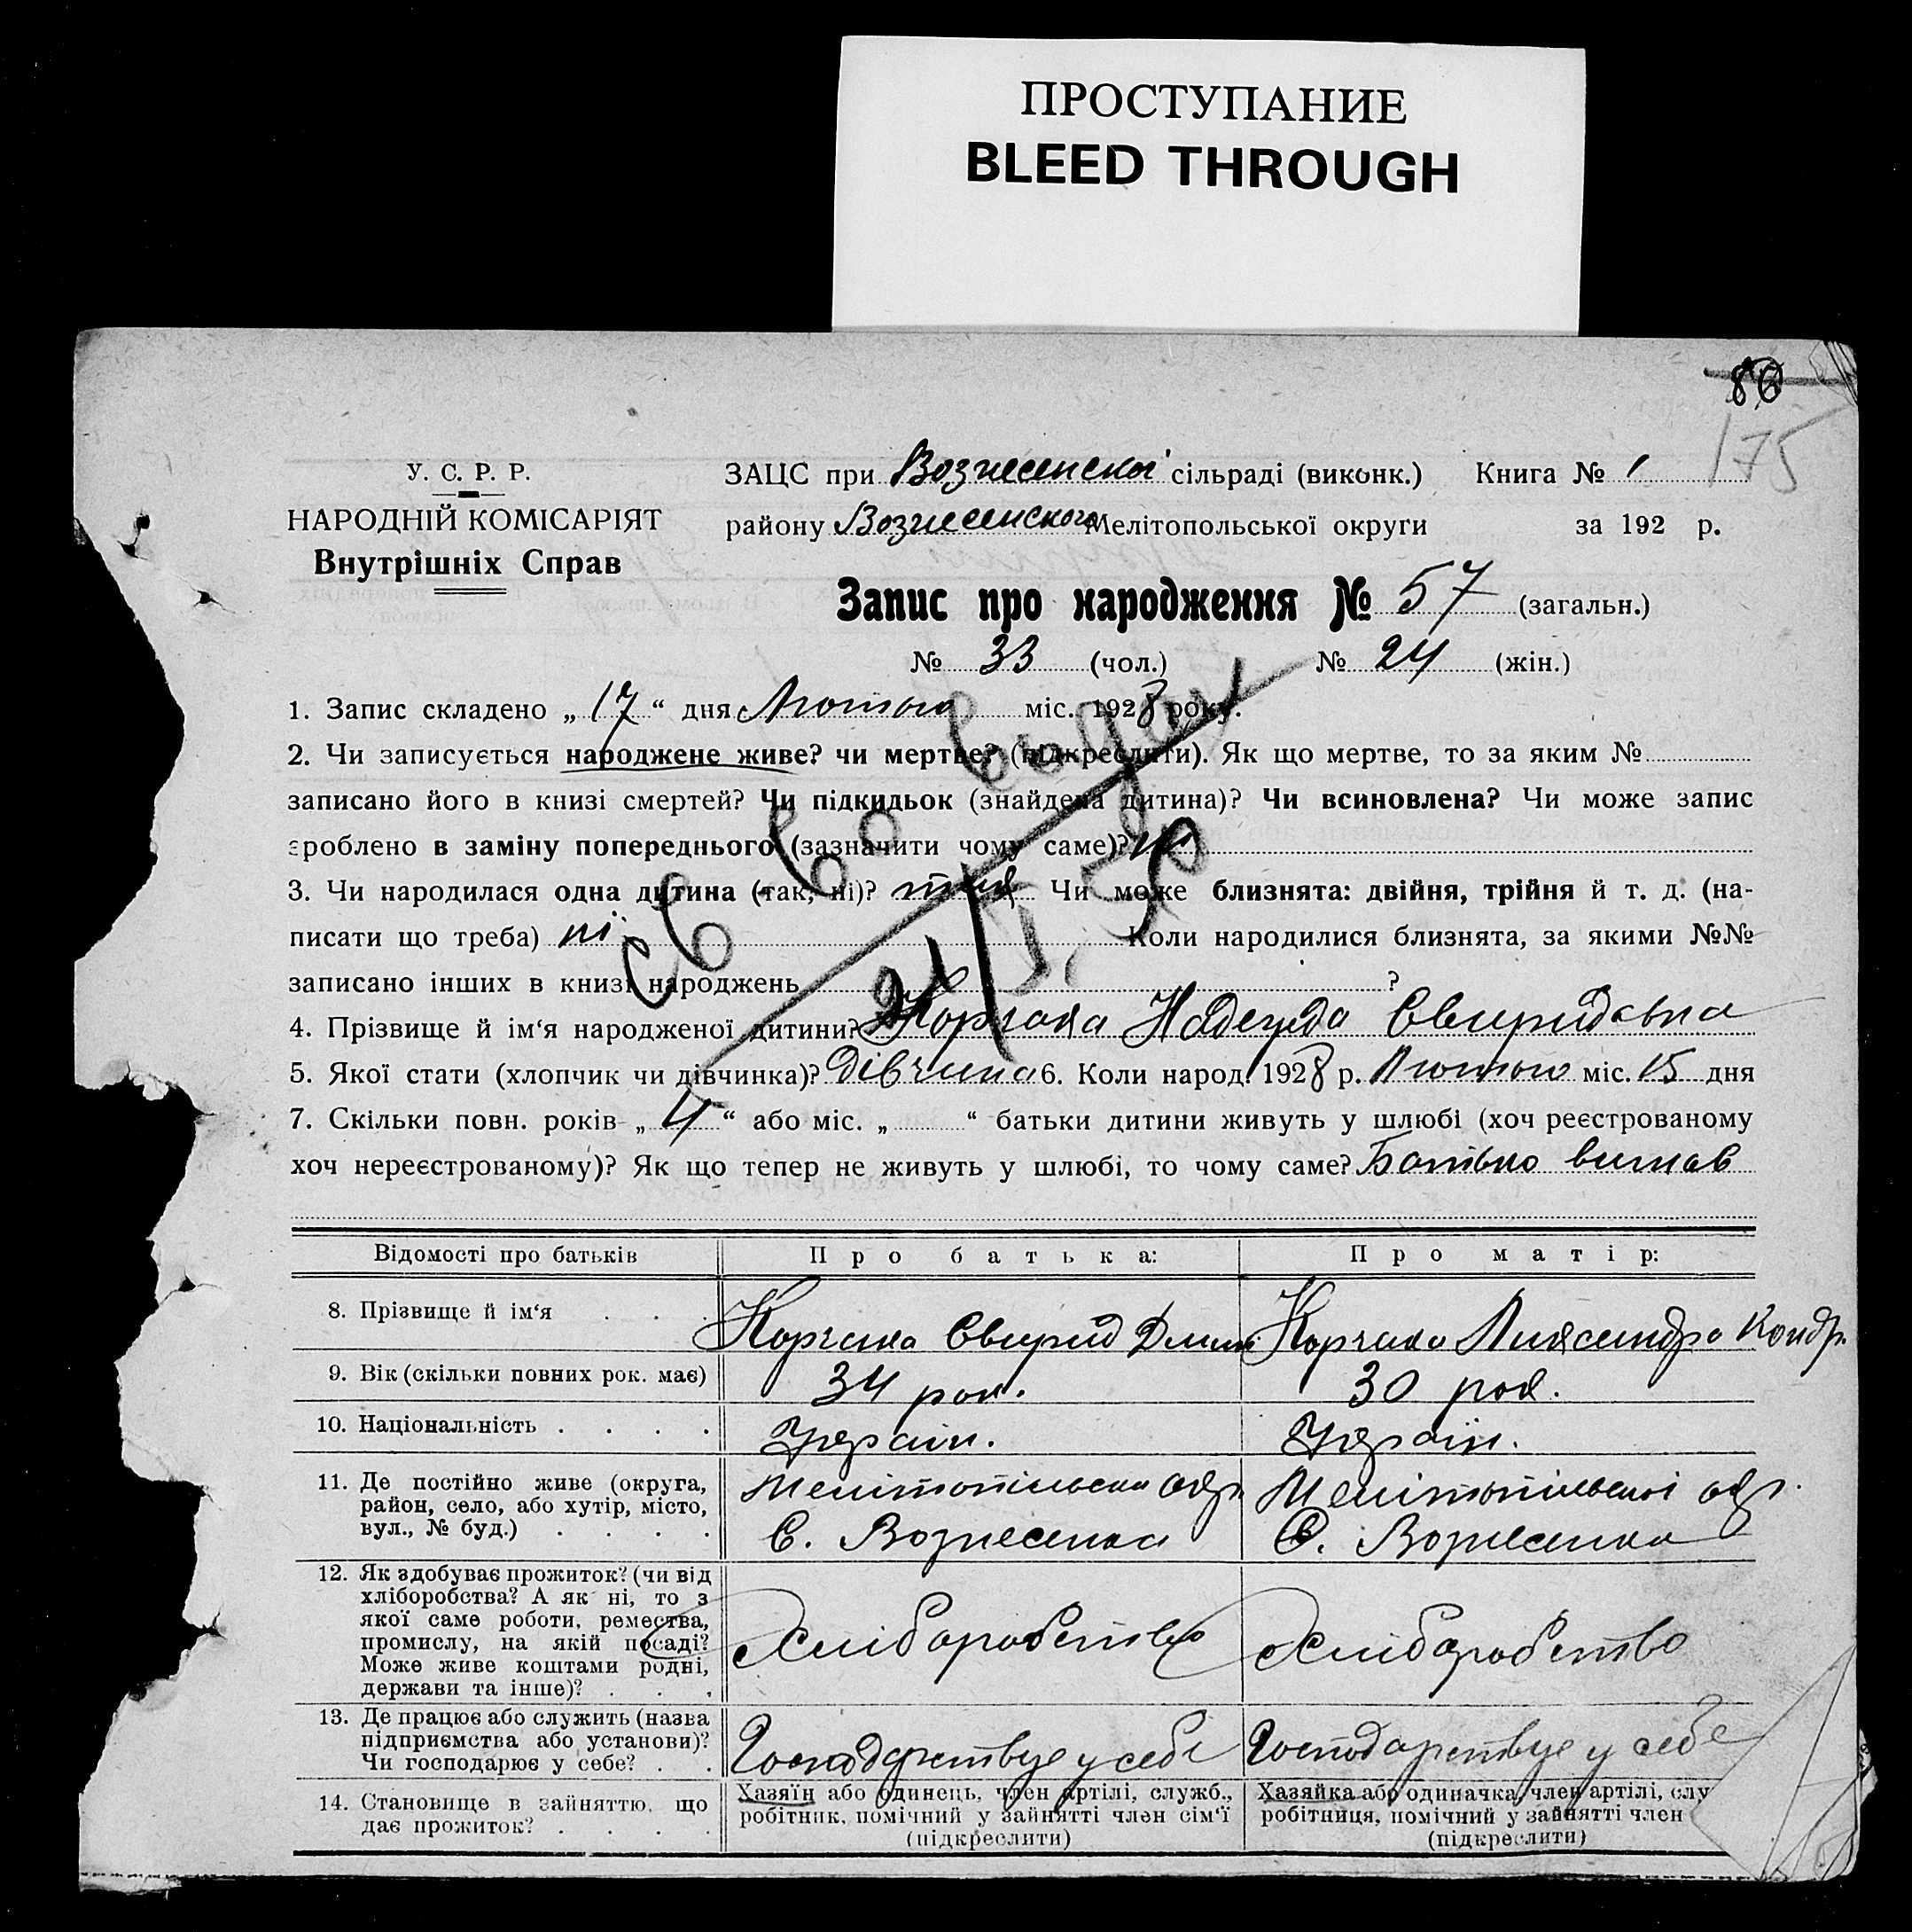 ПРОСТУПАНИЕ
BLEED THROUGH
80
175
У. С. Р. Р.
НАРОДНІЙ КОМІСАРІЯТ
Внутрішніх Справ
ЗАЦС при Вознесенскої сільраді (виконк.) Книга № 1
району Вознесенского Мелітопольської округи за 192 р.
Запис про народження № 57 (загальн.)
№ 33 (чол.) № 24 (жін.)
1. Запис складено „ 17 “ дня Лютого міс. 1928 року.
2. Чи записується народжене живе? чи мертве? (підкреслити). Як що мертве, то за яким №
записано його в книзі смертей? Чи підкидьок (знайдена дитина)? Чи всиновлена? Чи може запис
зроблено в заміну попереднього (зазначити чому саме)? ні
3. Чи народилася одна дитина (так, ні)? так Чи може близнята: двійня, трійня й т. д. (на-
писати що треба) ні Коли народилися близнята, за якими №№
записано інших в книзі народжень ?
св во выдач
4. Прізвище й ім‘я народженої дитини? Корчака Надежда Свиридовна
5. Якої стати (хлопчик чи дівчинка)? Дівчина 6. Коли народ. 1928 р. Лютого міс. 15 дня
7. Скільки повн. років „ 4 “ або міс. „ “ батьки дитини живуть у шлюбі (хоч реєстрованому
хоч нереєстрованому)? Як що тепер не живуть у шлюбі, то чому саме? Батько
Відомості про батьків Про батька: Про матір:
8. Прізвище й ім‘я Корчака Свирид Корчака Кондр.
9. Вік (скільки повних рок. має) 34 рок. 30 рок.
10. Національність Україн. Україн.
11. Де постійно живе (округа, район, село, або хутір, місто, вул., № буд.)
Мелітопільска окр. С. Вознесенка
Мелітопільскої окр. С. Вознесенка
12. Як здобуває прожиток? (чи від
хліборобства? А як ні, то з
якої саме роботи, ремества,
промислу, на якій посаді?
Може живе коштами родні,
держави та інше)?
Хліборобство Хліборобство
13. Де працює або служить (назва
підприємства або установи)?
Чи господарює у себе?
Господарствує у себе Господарствує у себе
14. Становище в зайняттю, що
дає прожиток?
Хазяїн або одинець, член артілі, служб.,
робітник, помічний у зайнятті член сім‘ї
(підкреслити)
Хазяйка або одиначка, член артілі, слу
робітниця, помічний у зайнятті член
(підкреслити)